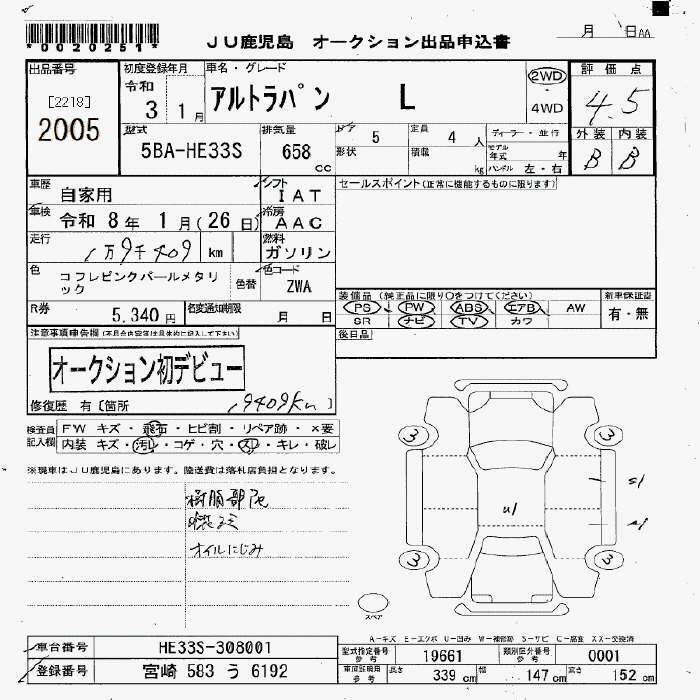 *0020251*
JU鹿児島 オークション出品申込書
月 日AA
出品番号
[2218]
2005
初度登録年月
令和
3 1月
車名・グレード
アルトラパン L
2WD
・
4WD
評価点
4.5
型式
5BA-HE33S
排気量
658
cc
ドア 5
定員 4 人
形状
積載 kg
ディーラー・並行
モデル年式 年
ハンドル 左・右
外装 内装
B B
車歴 自家用
シフト IAT
セールスポイント(正常に機能するものに限ります)
車検 令和 8年 1月(26日)
冷房 AAC
走行 1万9千409 km
燃料 ガソリン
色 コフレピンクパールメタリック
色替
色コード ZWA
装備品(純正品に限り○をつけてください)
PS PW ABS エアB AW
SR ナビ TV カワ
新車保証書
有・無
R券 5,340円
名変通知期限 月 日
後日品
注意事項申告欄(不具合内容等は具体的に記入して下さい)
オークション初デビュー
修復歴 有〔箇所 19409km 〕
検査員記入欄
FW キズ・飛石・ヒビ割・リペア跡・×要
内装 キズ・汚れ・コゲ・穴・スレ・キレ・破レ
※現車はJU鹿児島にあります。陸送費は落札店負担となります。
樹脂部色
オイルにじみ
3 3
U1
3 3
スペア
A-キズ E-エクボ U-凹み W-補修跡 S-サビ C-腐食 XX-交換済
車台番号 HE33S-308001
登録番号 宮崎 583 う 6192
型式指定番号 参考 19661
類別区分番号 参考 0001
車庫証明用 参考 長さ 339 cm 幅 147 cm 高さ 152 cm